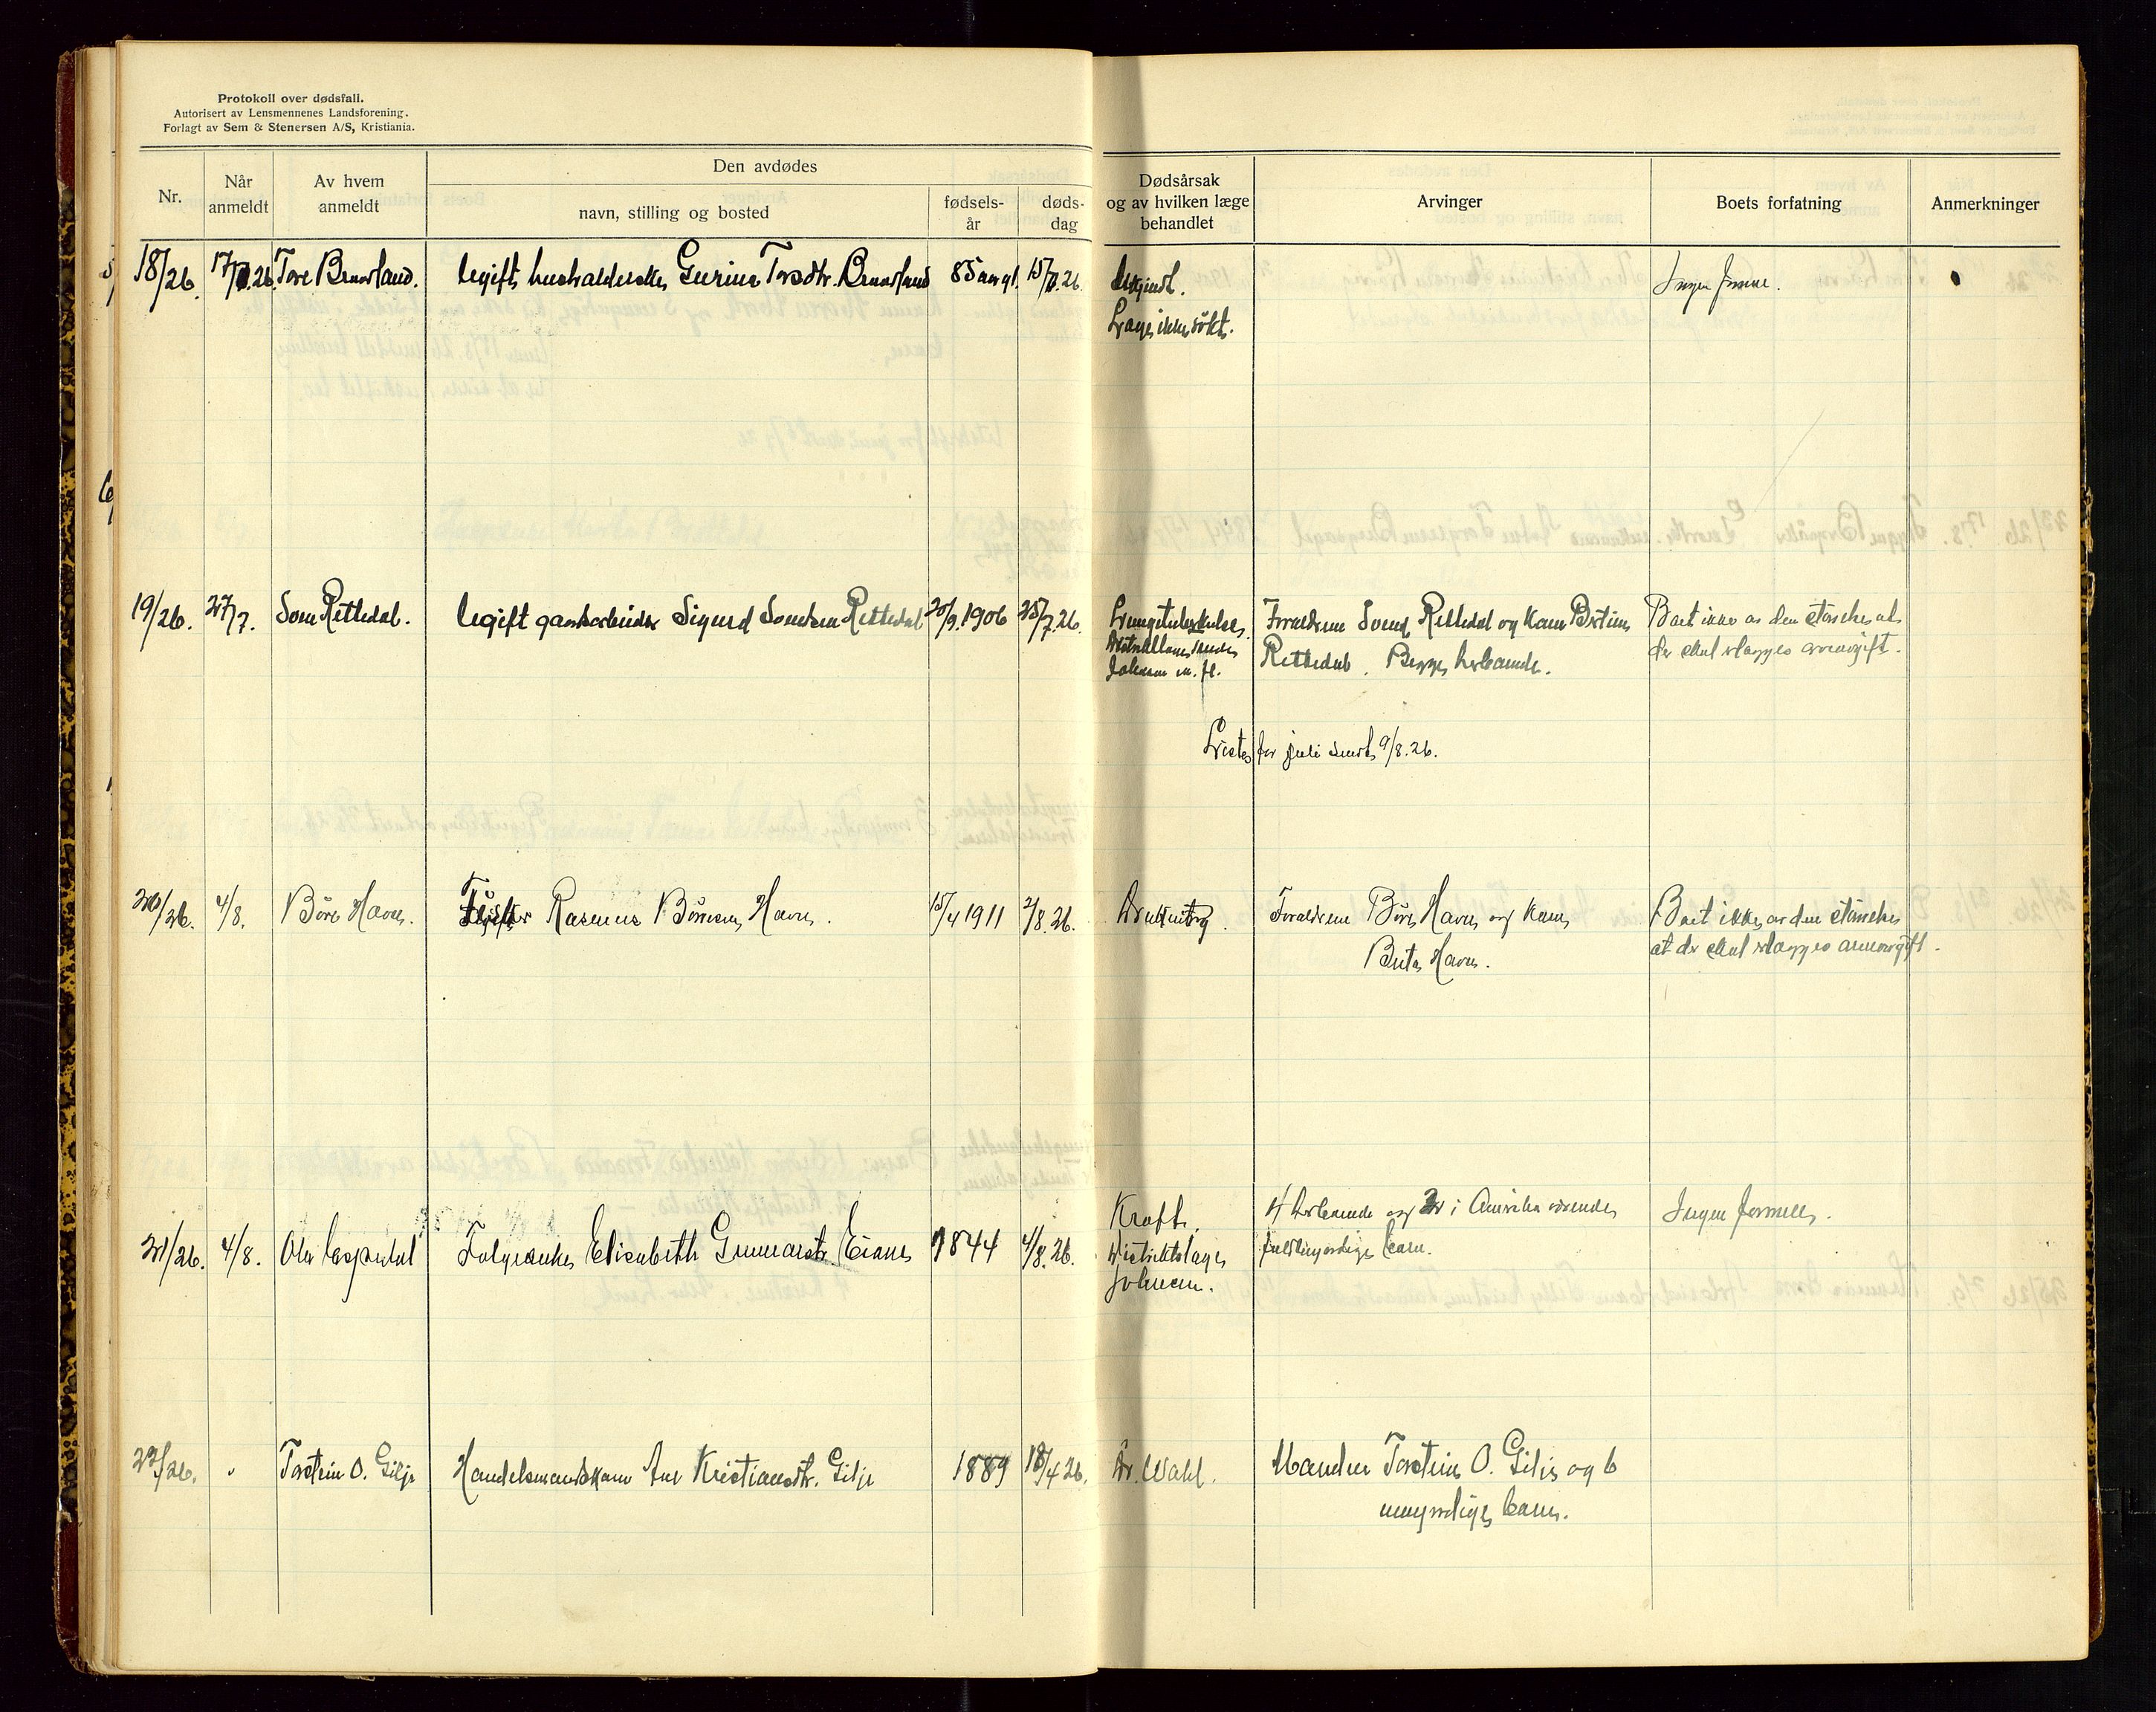 Protokoll over dødsfall.
Autorisert av Lensmennenes Landsforening.
Forlagt av Sem & Stenersen A/S, Kristiania.
Nr.
Når anmeldt
Av hvem anmeldt
Den avdødes
navn, stilling og bosted
fødsels-år
døds-dag
Dødsårsak og av hvilken læge behandlet
Arvinger
Boets forfatning
Anmerkninger
18/26. 17/7.26. Tore Brusland. Ugift husholderske Gurine Torsdtr. Brusland 85 aar gl. 15/7.26. Ukjendt. Ingen formue.
Læge ikke søkt.
19/26. 27/7. Sven Rettedal. Ugift gaardsarbeider Sigurd Svendsen Rettedal 20/9.1906 25/7.26. Lungetuberkulose. Forældrene Svend Rettedal og kone Bertine Boet ikke av den størrelse at
Distriktslæge
Johnsen m. fl. Rettedal. Begge herboende. der skal erlægges arveavgift.
Liste for juli sendt 9/8.26.
20/26. 4/8. Børe Havn. Fisker Rasmus Børesen Havn. 15/4 1911 2/8.26. Drukning. Forældrene Børe Havn og kone Boet ikke av den størrelse
Berta Havn. at der skal erlægges arveavgift.
21/26. 4/8. Ola Espedal Folgeenke Elisabeth Gunnarsdtr. Eiane 1844 4/8.26. Kræft. 4 herboende og 2 i Amerika værende Ingen formue.
Distriktslæge fuldmyndige barn.
Johnsen.
22/26. " Torstein O. Gilje Handelsmandskone Ane Kristiansdtr. Gilje 1889 18/4 26. Dr. Wahl. Manden Torstein O. Gilje og 6
umyndige barn.